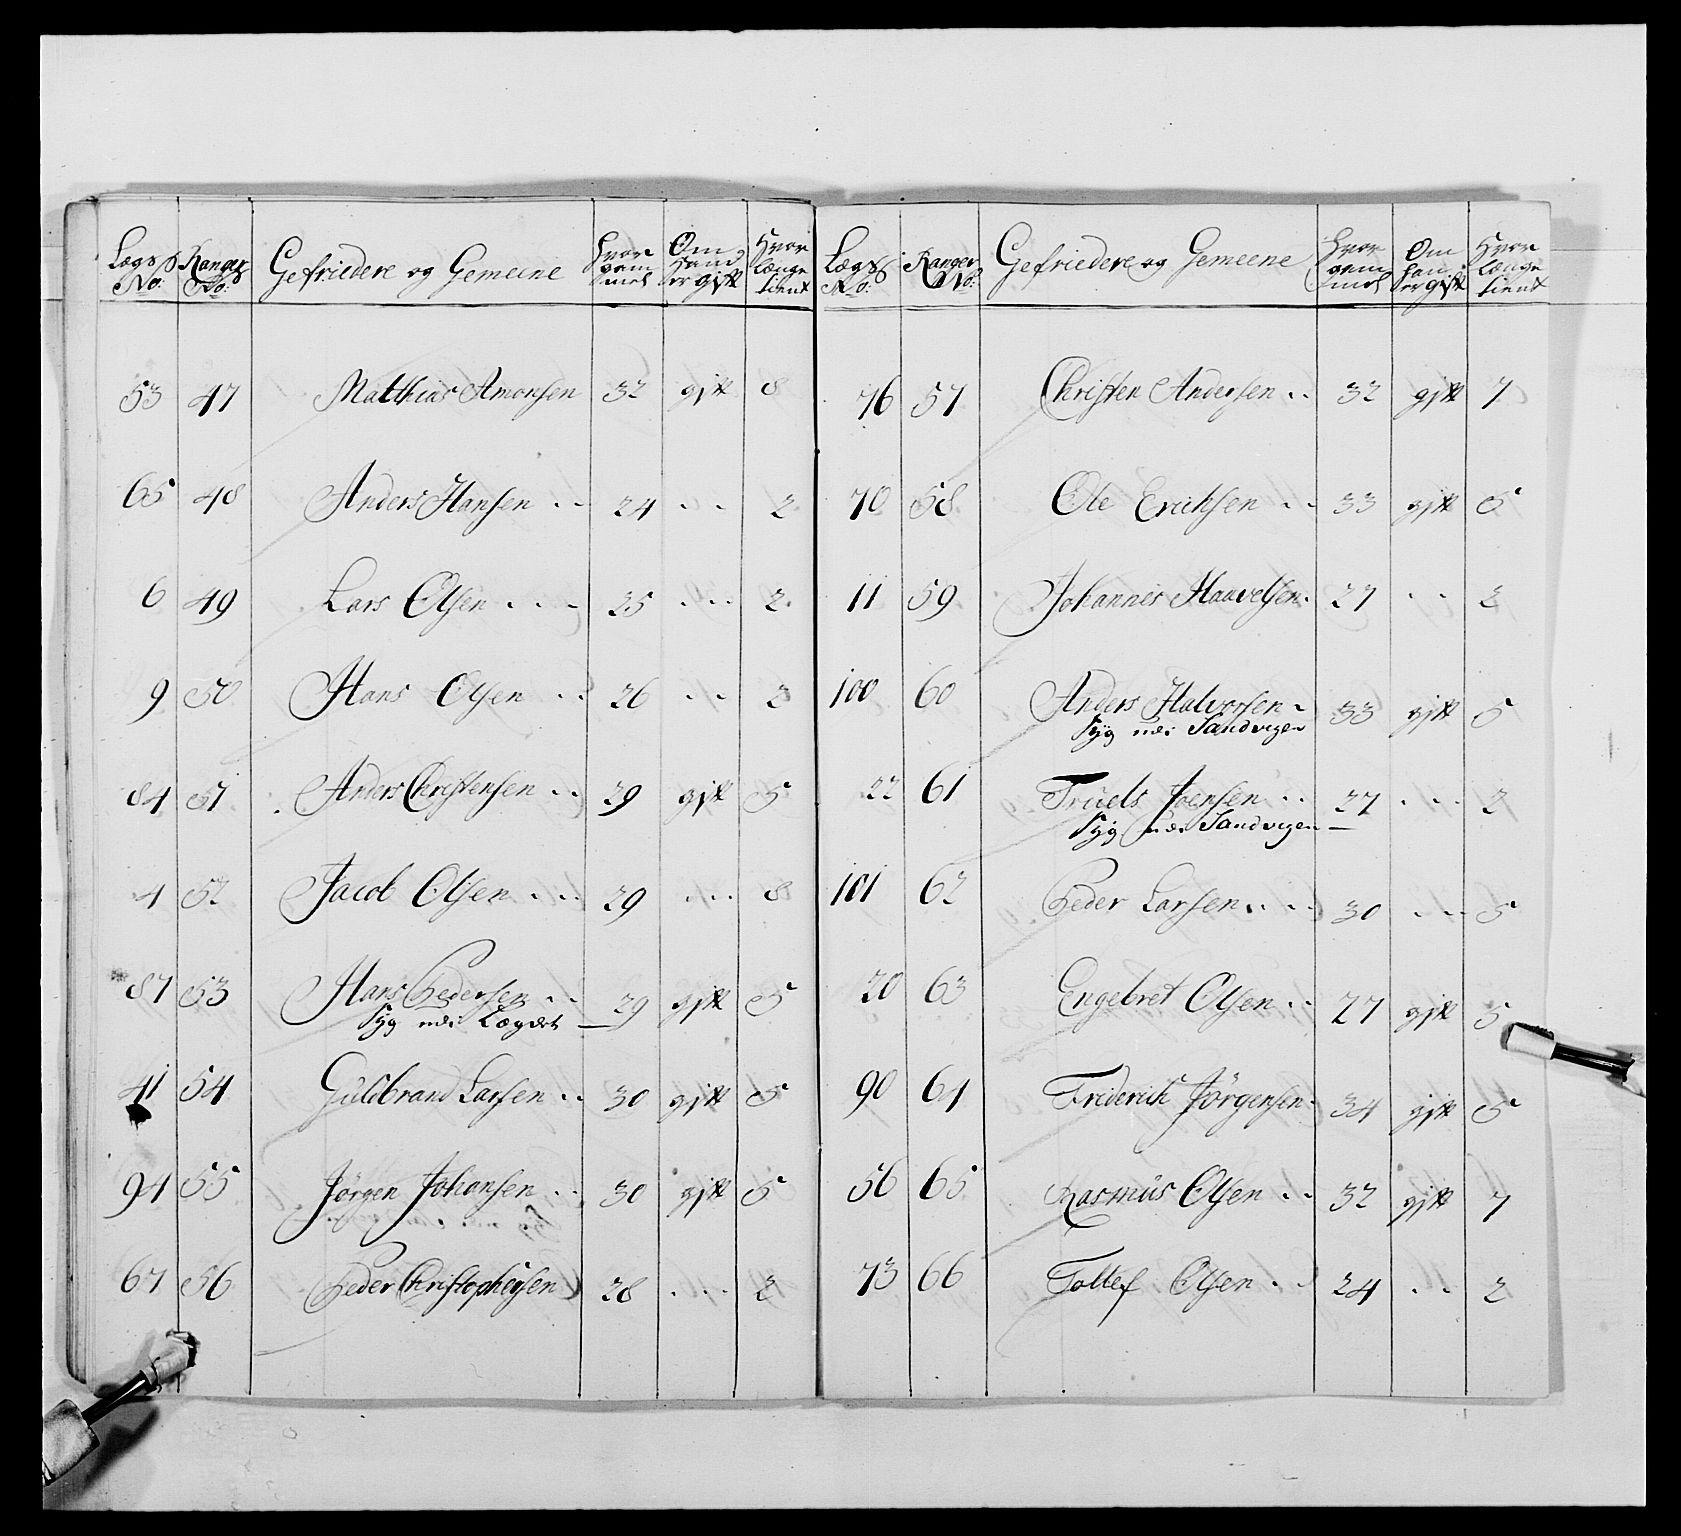 Lægs No: Ranger No: Gefriedere og Gemeene Hvor gam̄mel Om hand er gift Hvor længe tient
53 47 Matthias Amonsen 32 gift 8
65 48 Anders Hansen .. 24 .. 2
6 49 Lars Olsen ... 25 ... 2
9 50 Hans Olsen .. 26 .. 2
84 51 Anders Christensen .. 29 gift 5
4 52 Jacob Olsen ... 29 ... 8
87 53 Hans Pedersen .. 29 gift 5
Syg ved Lægdet
41 54 Guldbrand Larsen .. 30 gift 5
94 55 Jörgen Johansen .. 30 gift 5
67 56 Peder Christophersen 28 ... 2
Lægs No: Ranger No: Gefriedere og Gemeene Hvor gam̄mel Om han er gift Hvor længe tient
76 57 Christen Andersen .. 32 gift 7
70 58 Ole Erichsen .. 33 gift 5
11 59 Johannes Haavelsen. 27 .. 2
100 60 Anders Halvorsen 33 gift 5
Syg ved Sandvigen
22 61 Truels Joensen .. 27 ... 2
Syg ved Sandvigen
101 62 Peder Larsen ... 30 ... 5
20 63 Engebret Olsen .. 27 gift 5
90 64 Friderich Jörgensen. 34 gift 5
56 65 Rasmus Olsen .. 32 gift 7
73 66 Tollef Olsen .. 24 .. 2